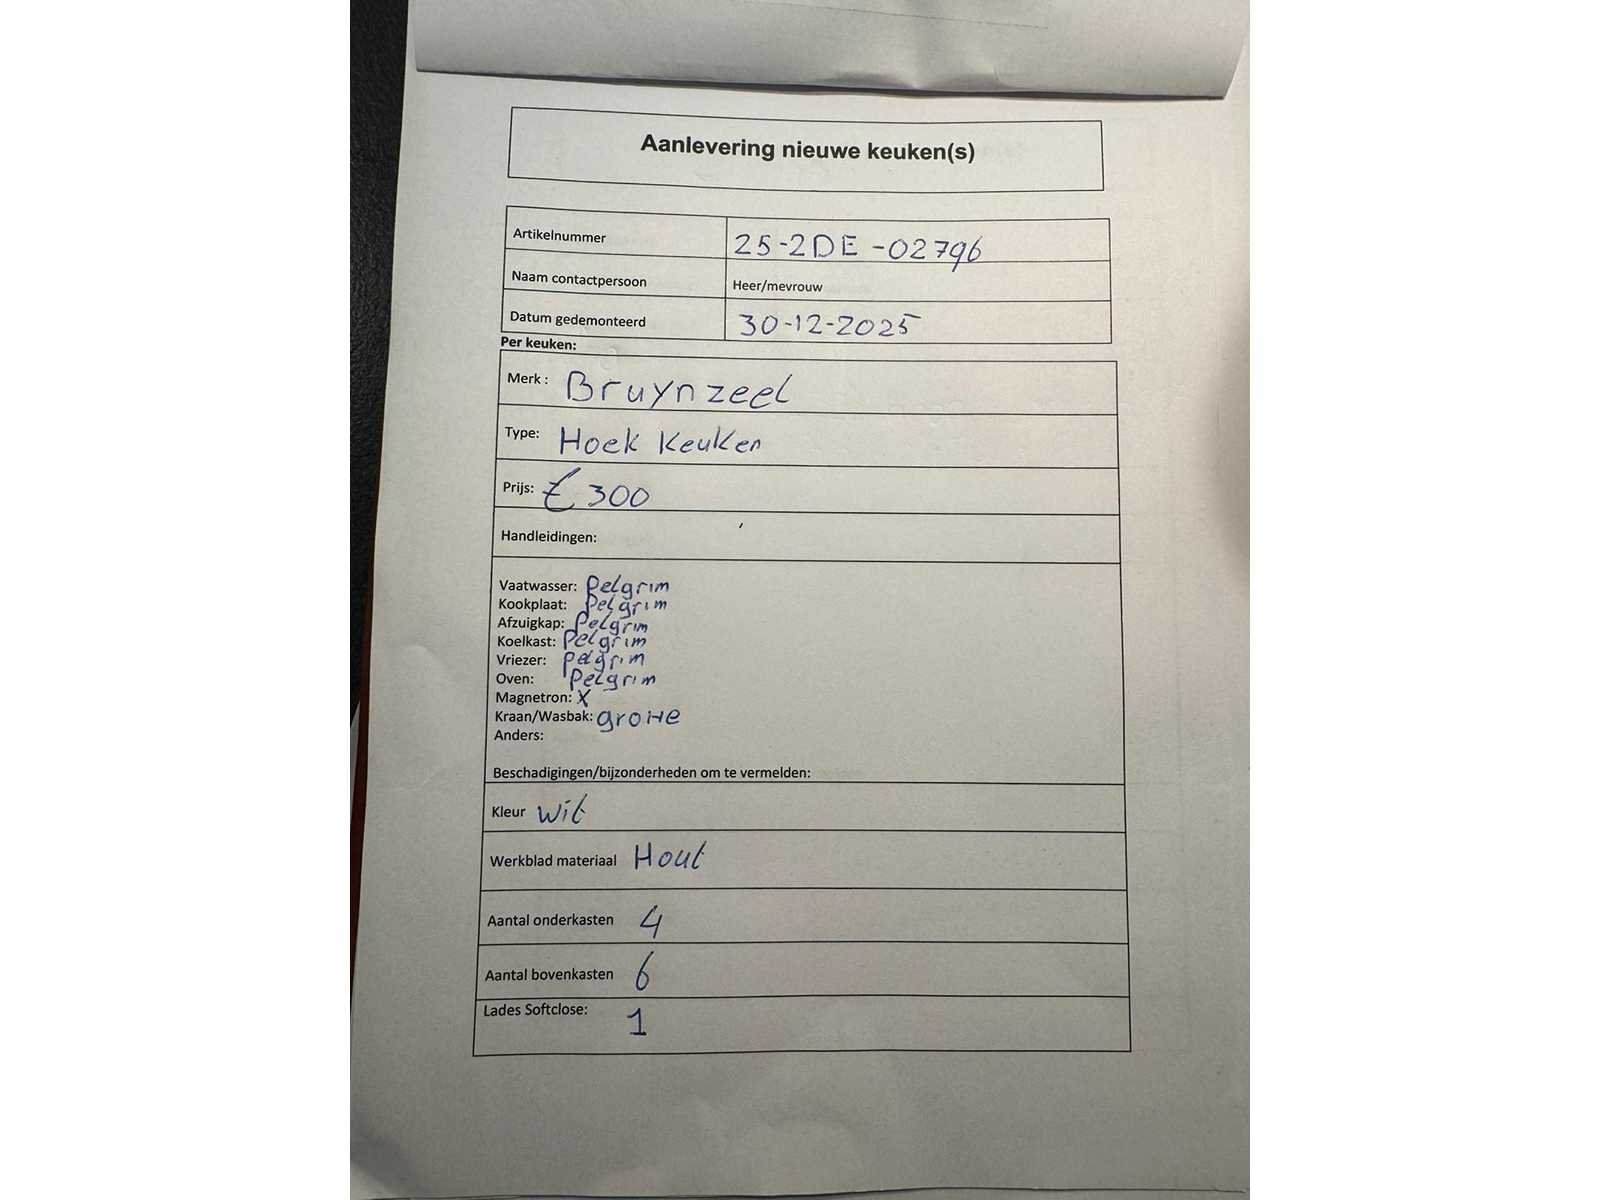 Aanlevering nieuwe keuken(s)
Artikelnummer 25-2DE-02796
Naam contactpersoon Heer/mevrouw
Datum gedemonteerd 30-12-2025
Per keuken:
Merk : Bruynzeel
Type: Hoek Keuken
Prijs: € 300
Handleidingen:
Vaatwasser: Pelgrim
Kookplaat: Pelgrim
Afzuigkap: Pelgrim
Koelkast: Pelgrim
Vriezer: Pelgrim
Oven: Pelgrim
Magnetron: X
Kraan/Wasbak: groHe
Anders:
Beschadigingen/bijzonderheden om te vermelden:
Kleur wit
Werkblad materiaal Hout
Aantal onderkasten 4
Aantal bovenkasten 6
Lades Softclose: 1